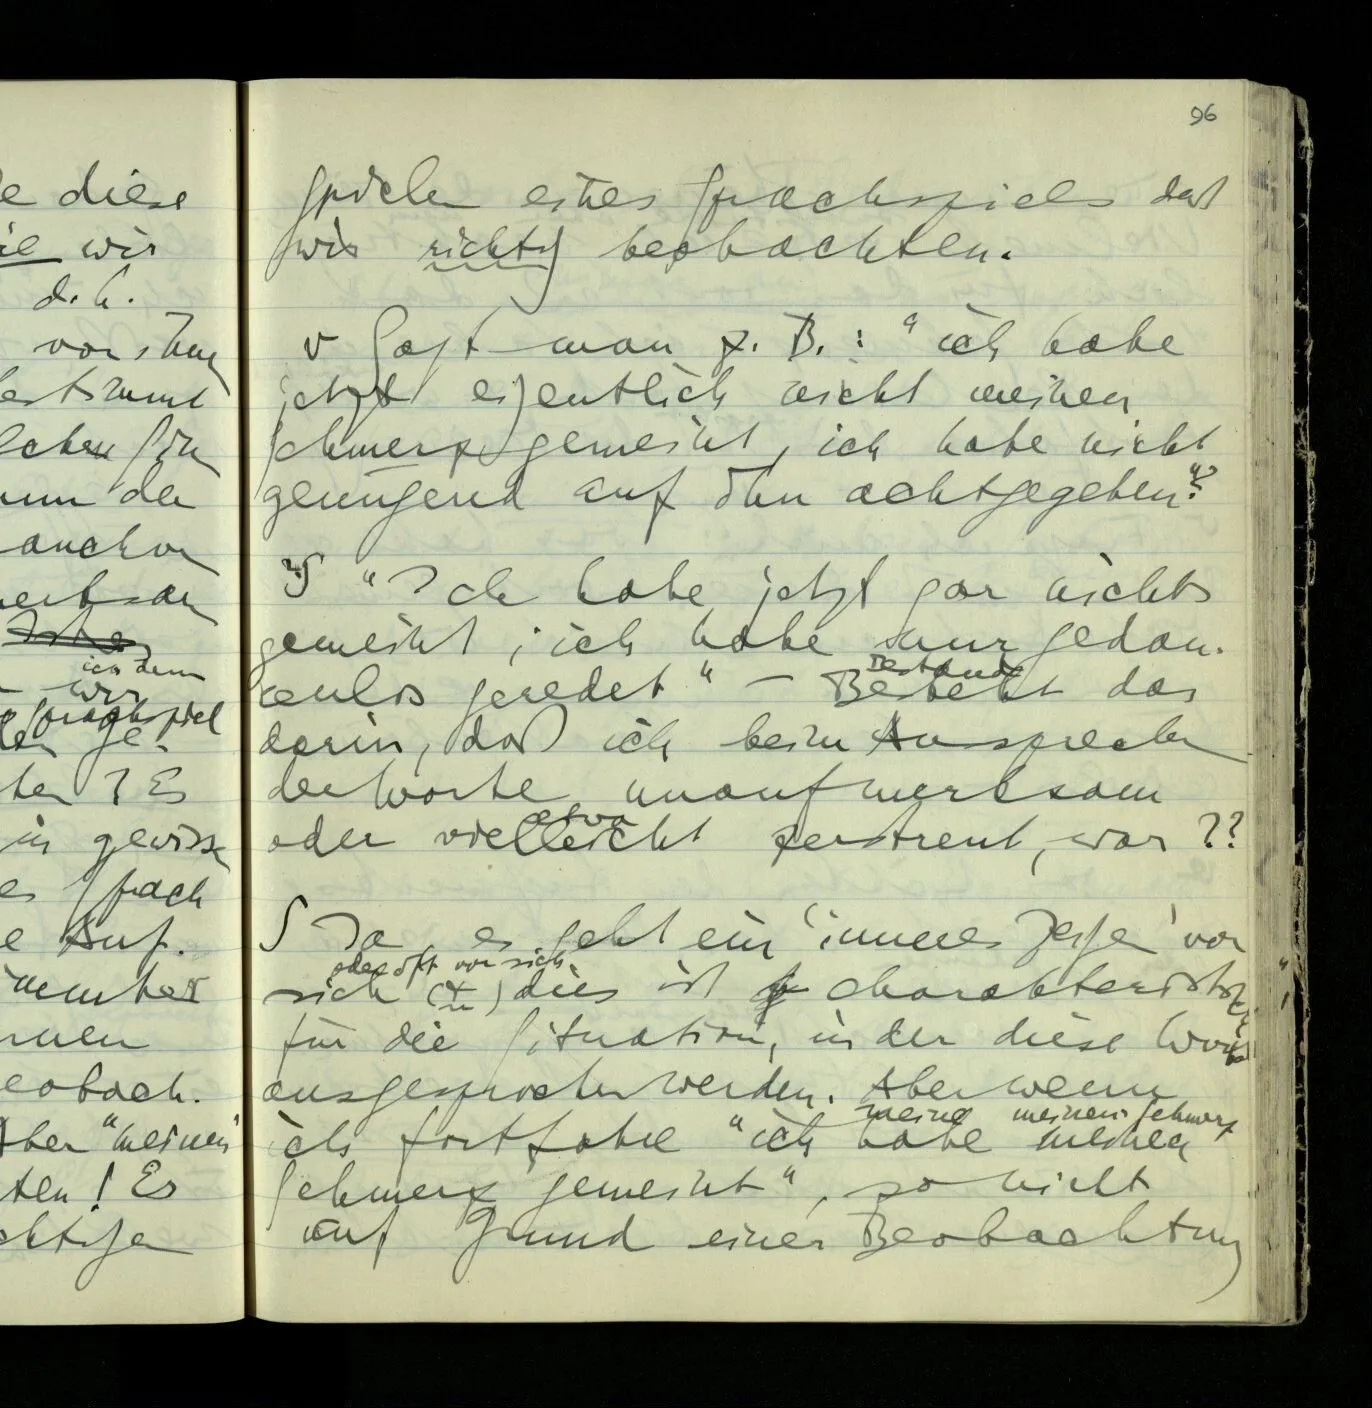 e diese
ie wir
d.h.
vorsinn
bestimmt
um der
manchen
merksam
ich dem
wir
Sprachspiel
ten ge-
ten? Es
in gewisse
es Sprach
e Auf-
immter
beobach-
Aber "meinen"
ten! Es
chtige
96
spielen eines Sprachspiels das
wir richtig beobachten.
v Sagt man z. B.: "ich habe
jetzt eigentlich nicht meinen
Schmerz gemeint, ich habe nicht
genügend auf ihn achtgegeben"?
S "Ich habe jetzt gar nichts
gemeint; ich habe nur gedan-
Bestand
kenlos geredet" – Besteht das
darin, daß ich beim Aussprechen
der Worte unaufmerksam
etwa
oder vielleicht zerstreut, war??
S Ja, es geht ein 'inneres Zeigen' vor
oder oft vor sich
sich (u) dies ist charakteristisch
für die Situation, in der diese Worte
ausgesprochen werden. Aber wenn
meine meinen Schmerz
ich fortfahre "ich habe meinen
Schmerz gemeint", so nicht
auf Grund einer Beobachtung